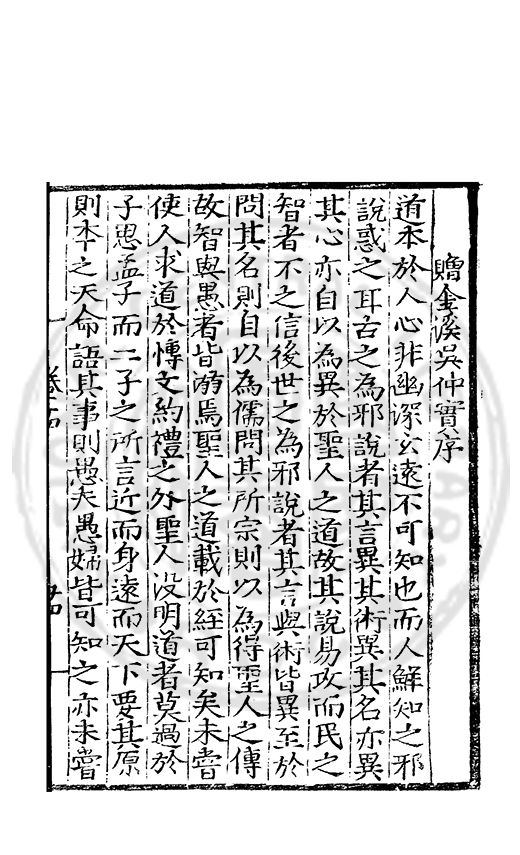 贈金溪吳仲實序
道本於人心非幽深玄遠不可知也而人鮮知之邪
說惑之耳古之為邪說者其言異其術異其名亦異
其心亦自以為異於聖人之道故其說易攻而民之
智者不之信後世之為邪說者其言與術皆異至於
問其名則自以為儒問其所宗則以為得聖人之傳
故智與愚者皆溺焉聖人之道載於經可知矣未嘗
使人求道於愽文約禮之外聖人沒明道者莫過於
子思孟子而二子之所言近而身遠而天下要其原
則本之天命語其事則愚夫愚婦皆可知之亦未嘗